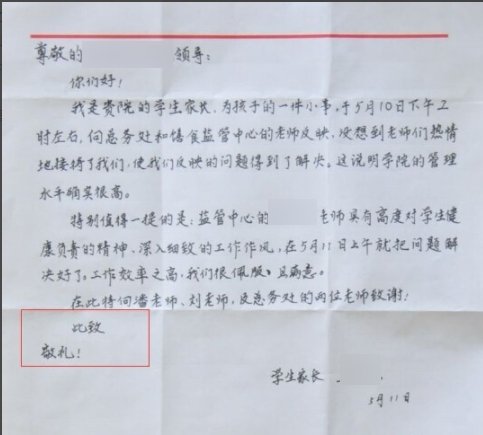 尊敬的 领导:
你们好!
我是贵院的学生家长,为孩子的一件小事,于5月10日下午2
时左右,向总务处和膳食监管中心的老师反映,没想到老师们热情
地接待了我们,使我们反映的问题得到了解决。这说明学院的管理
水平确实很高。
特别值得一提的是:监管中心的 老师具有高度对学生健
康负责的精神、深入细致的工作作风,在5月11日上午就把问题解
决好了。工作效率之高,我们很佩服、且满意。
在此特向潘老师、刘老师,及总务处的两位老师致谢!
此致
敬礼!
学生家长
5月11日